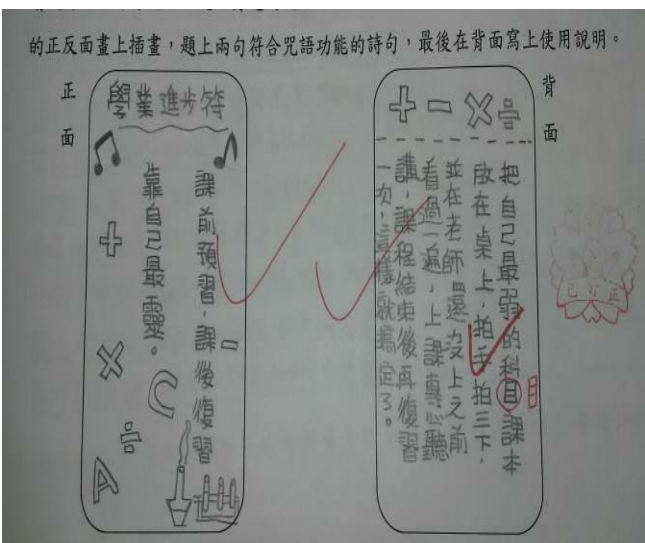 的正反面畫上插畫，題上兩句符合咒語功能的詩句，最後在背面寫上使用說明。
正面
學業進步符
課前預習，課後復習
靠自己最靈。
＋
×
÷
－
C
A
背面
＋－×÷
把自己最弱的科目課本
放在桌上，拍手拍三下，
並在老師還沒上之前
看過一遍，上課專心聽
講，課程結束後再復習
一次，這樣就搞定了。
目
已訂正